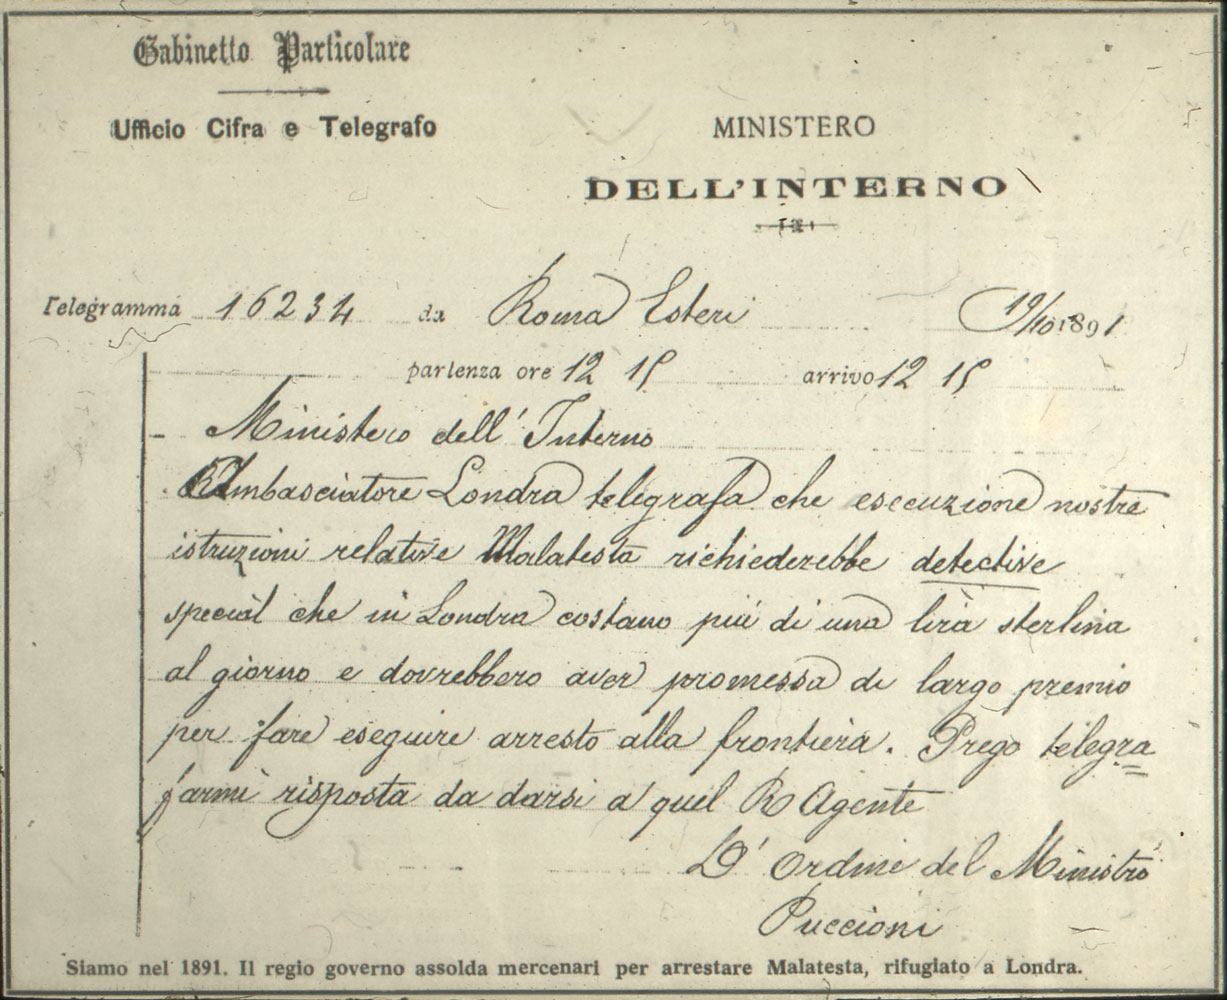 Gabinetto Particolare
Ufficio Cifra e Telegrafo
MINISTERO
DELL'INTERNO
Telegramma 16234 da Roma Esteri 19/10 1891
partenza ore 12 15 arrivo 12 15
Ministero dell'Interno
R Ambasciatore Londra telegrafa che esecuzione nostre
istruzioni relative Malatesta richiederebbe detective
special che in Londra costano più di una lira sterlina
al giorno e dovrebbero aver promessa di largo premio
per fare eseguire arresto alla frontiera. Prego telegra=
farmi risposta da darsi a quel R Agente
D'Ordine del Ministro
Puccioni
Siamo nel 1891. Il regio governo assolda mercenari per arrestare Malatesta, rifugiato a Londra.